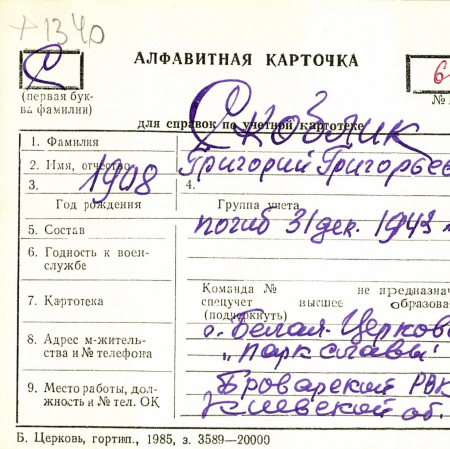 +1340
АЛФАВИТНАЯ КАРТОЧКА
С
6
(первая бук-
ва фамилии)
№
для справок по учетной картотеке
1. Фамилия
Скоблик
2. Имя, отчество
Григорий Григорьев
3. 1908
4.
Год рождения
Группа учета
5. Состав
погиб 31 дек. 1943
6. Годность к воен-
службе
7. Картотека
Команда № не предназнач
спецучет высшее образова
(подчеркнуть)
8. Адрес м-житель-
ства и № телефона
г. Белая-Церковь
„парк славы"
9. Место работы, дол-
жность и № тел. ОК
Броварской РВК
Киевской об.
Б. Церковь, гортип., 1985, з. 3589—20000